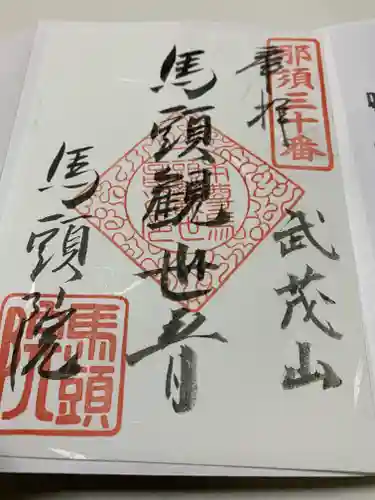 那須三十番
奉拝
武茂山
馬頭観世音
馬頭院
馬頭院